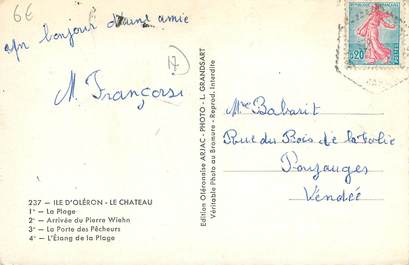 6E
bonjour d'une amie
M. Françoise
17
Edition Oléronaise ARJAC - PHOTO - L. GRANDSART
Véritable Photo au Bromure - Reprod. Interdite
0,20
POSTES
Babarit
Rue du Bois de la Folie
Pouzauges
Vendée
237 — ILE D'OLÉRON - LE CHATEAU
1° — La Plage
2° — Arrivée du Pierre Wiehn
3° — La Porte des Pêcheurs
4° — L'Étang de la Plage